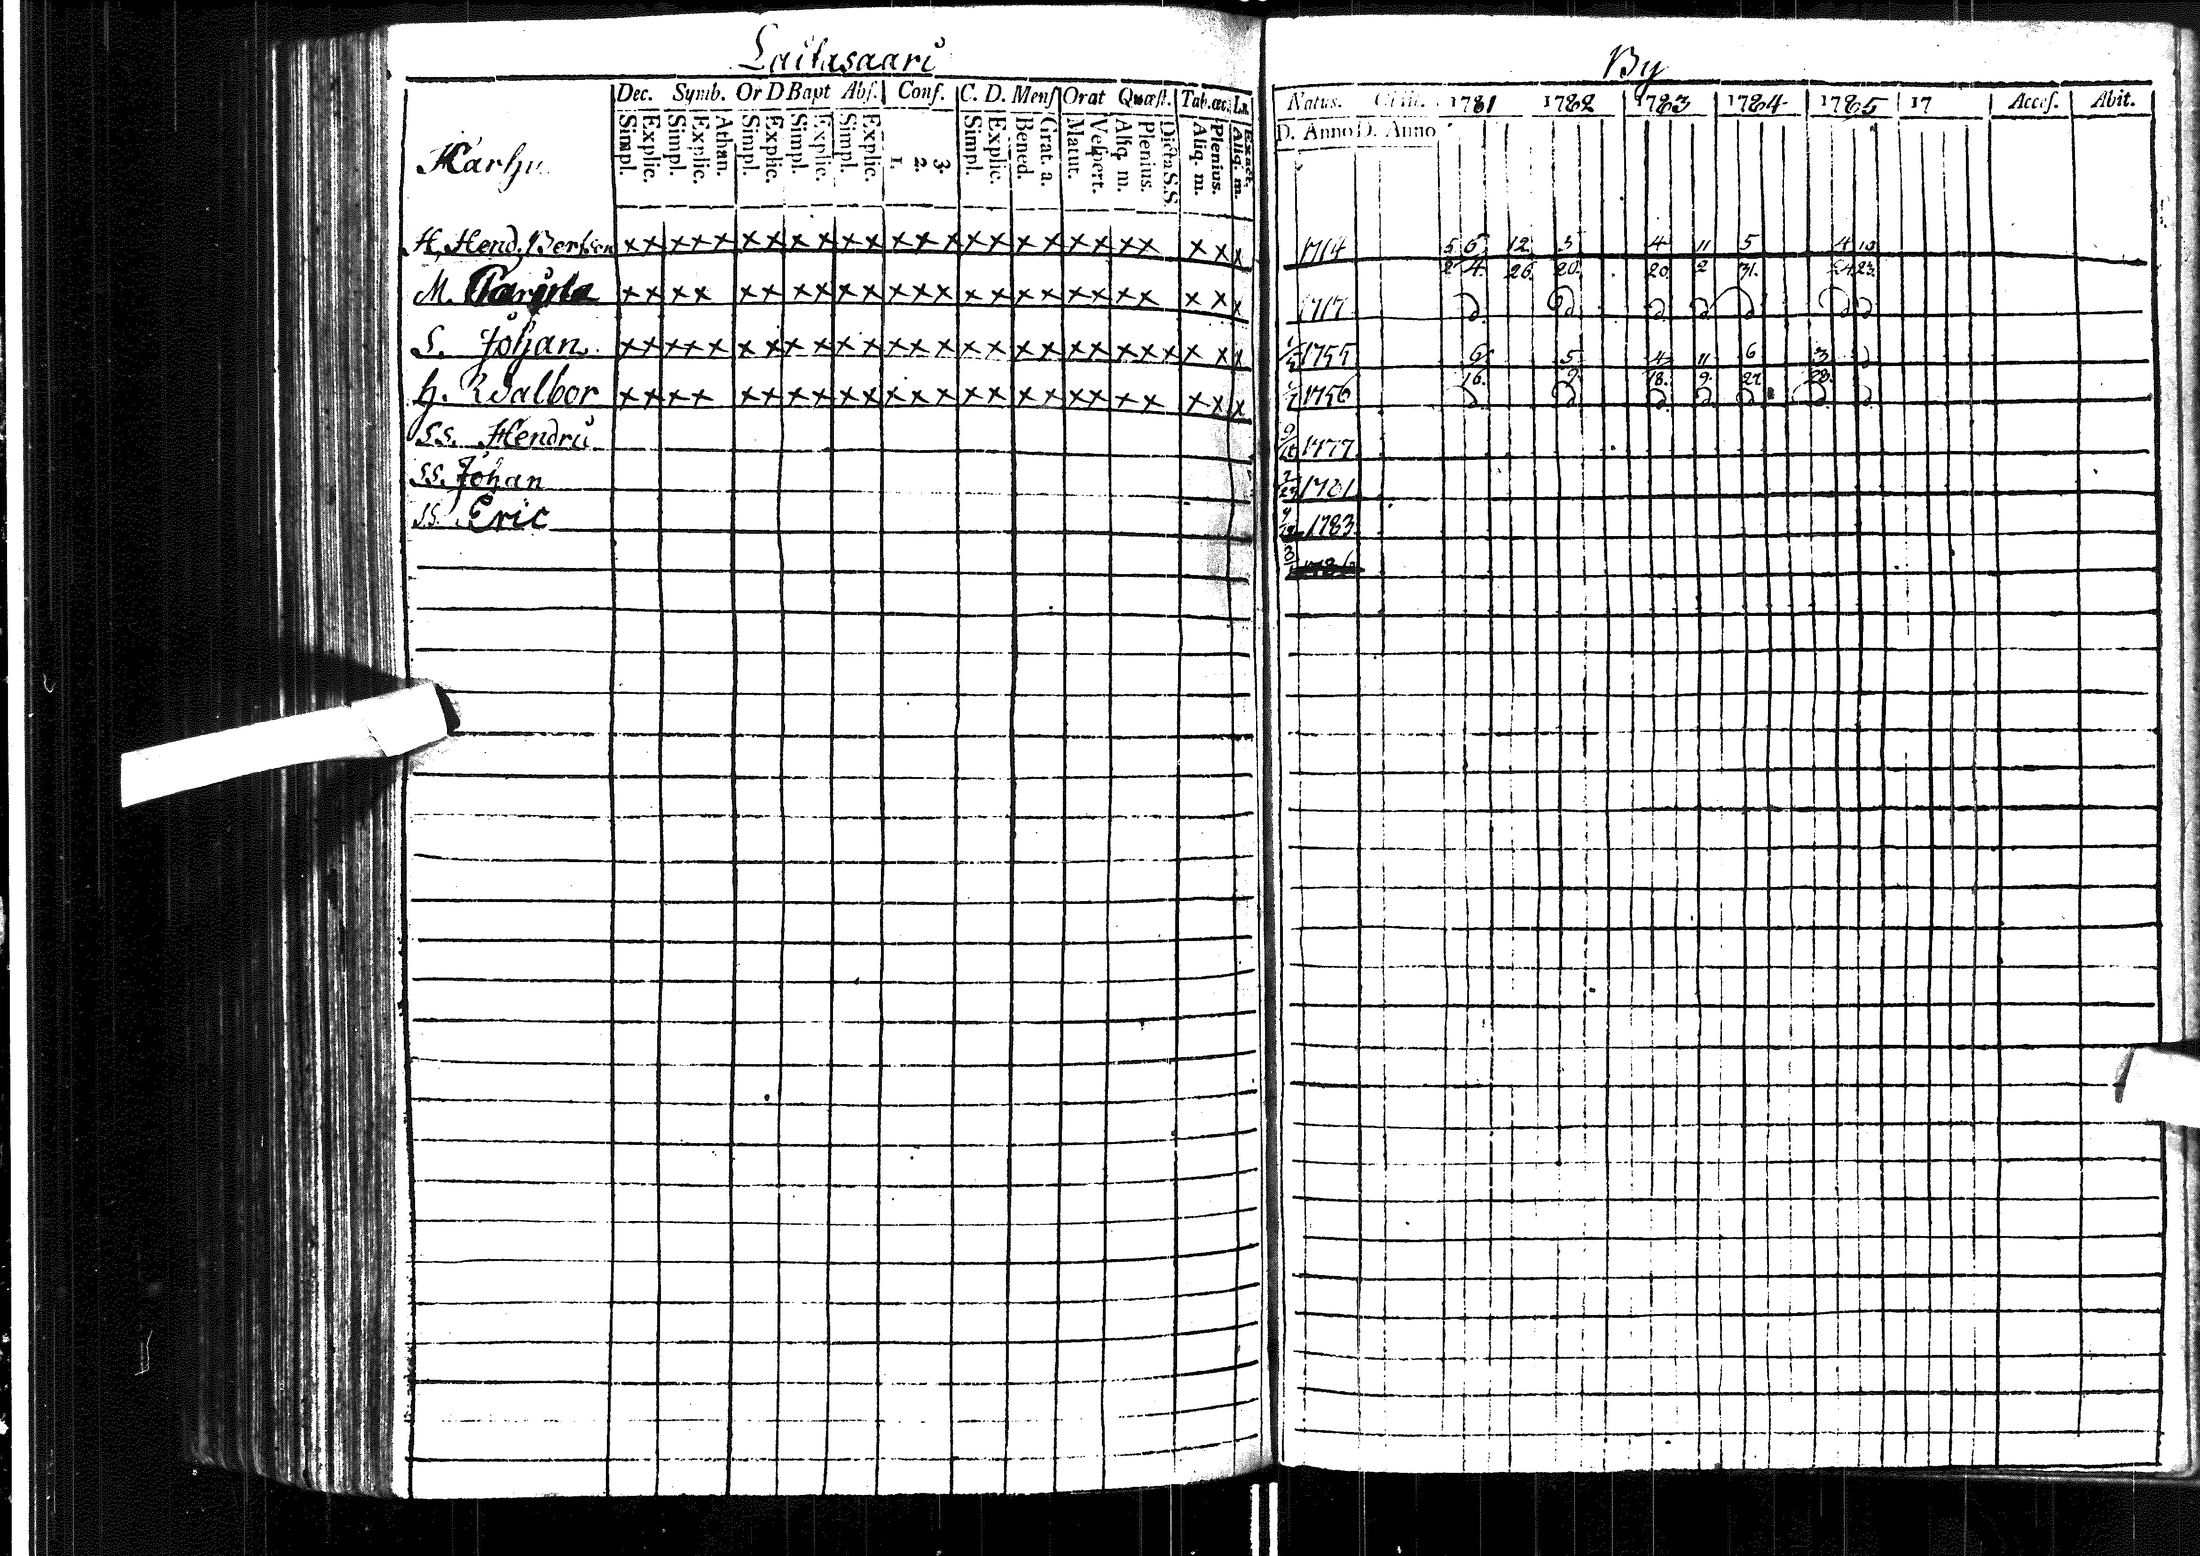 Laitasaari By
Dec. Symb. Or D Bapt Abs. Conf. C. D. Mens Orat Quæst. Tab. œc.
Natus. 1781 1782 1783 1784 1785 17 Acces. Abit.
D. Anno D. Anno
Simpl. Explic. Simpl. Explic. Athan. Simpl. Explic. Simpl. Explic. Simpl. Explic. 1. 2. 3. Simpl. Explic. Bened. Grat. a. Matut. Vespert. Aliq. m. Plenius. Dicta S.S. Aliq. m. Plenius. Aliq. m. Exact.
Karhu
H. Hend. x x x x x x x x x x x x x x x x x x x x x x x x x 1714 5 6 12 3 4 11 5 4 10
2 4. 26. 20. 20. 2 31. 24 23.
M. x x x x x x x x x x x x x x x x x x x x x x x 1717
S. Johan x x x x x x x x x x x x x x x x x x x x x x x x x x 1755 6 5 4 11 6 3
16. 9 18. 9. 27. 28.
h. Walbor x x x x x x x x x x x x x x x x x x x x x x x x 1756
ss. Hendri 1777
ss. Johan 2/23 1781
ss. Eric 1783